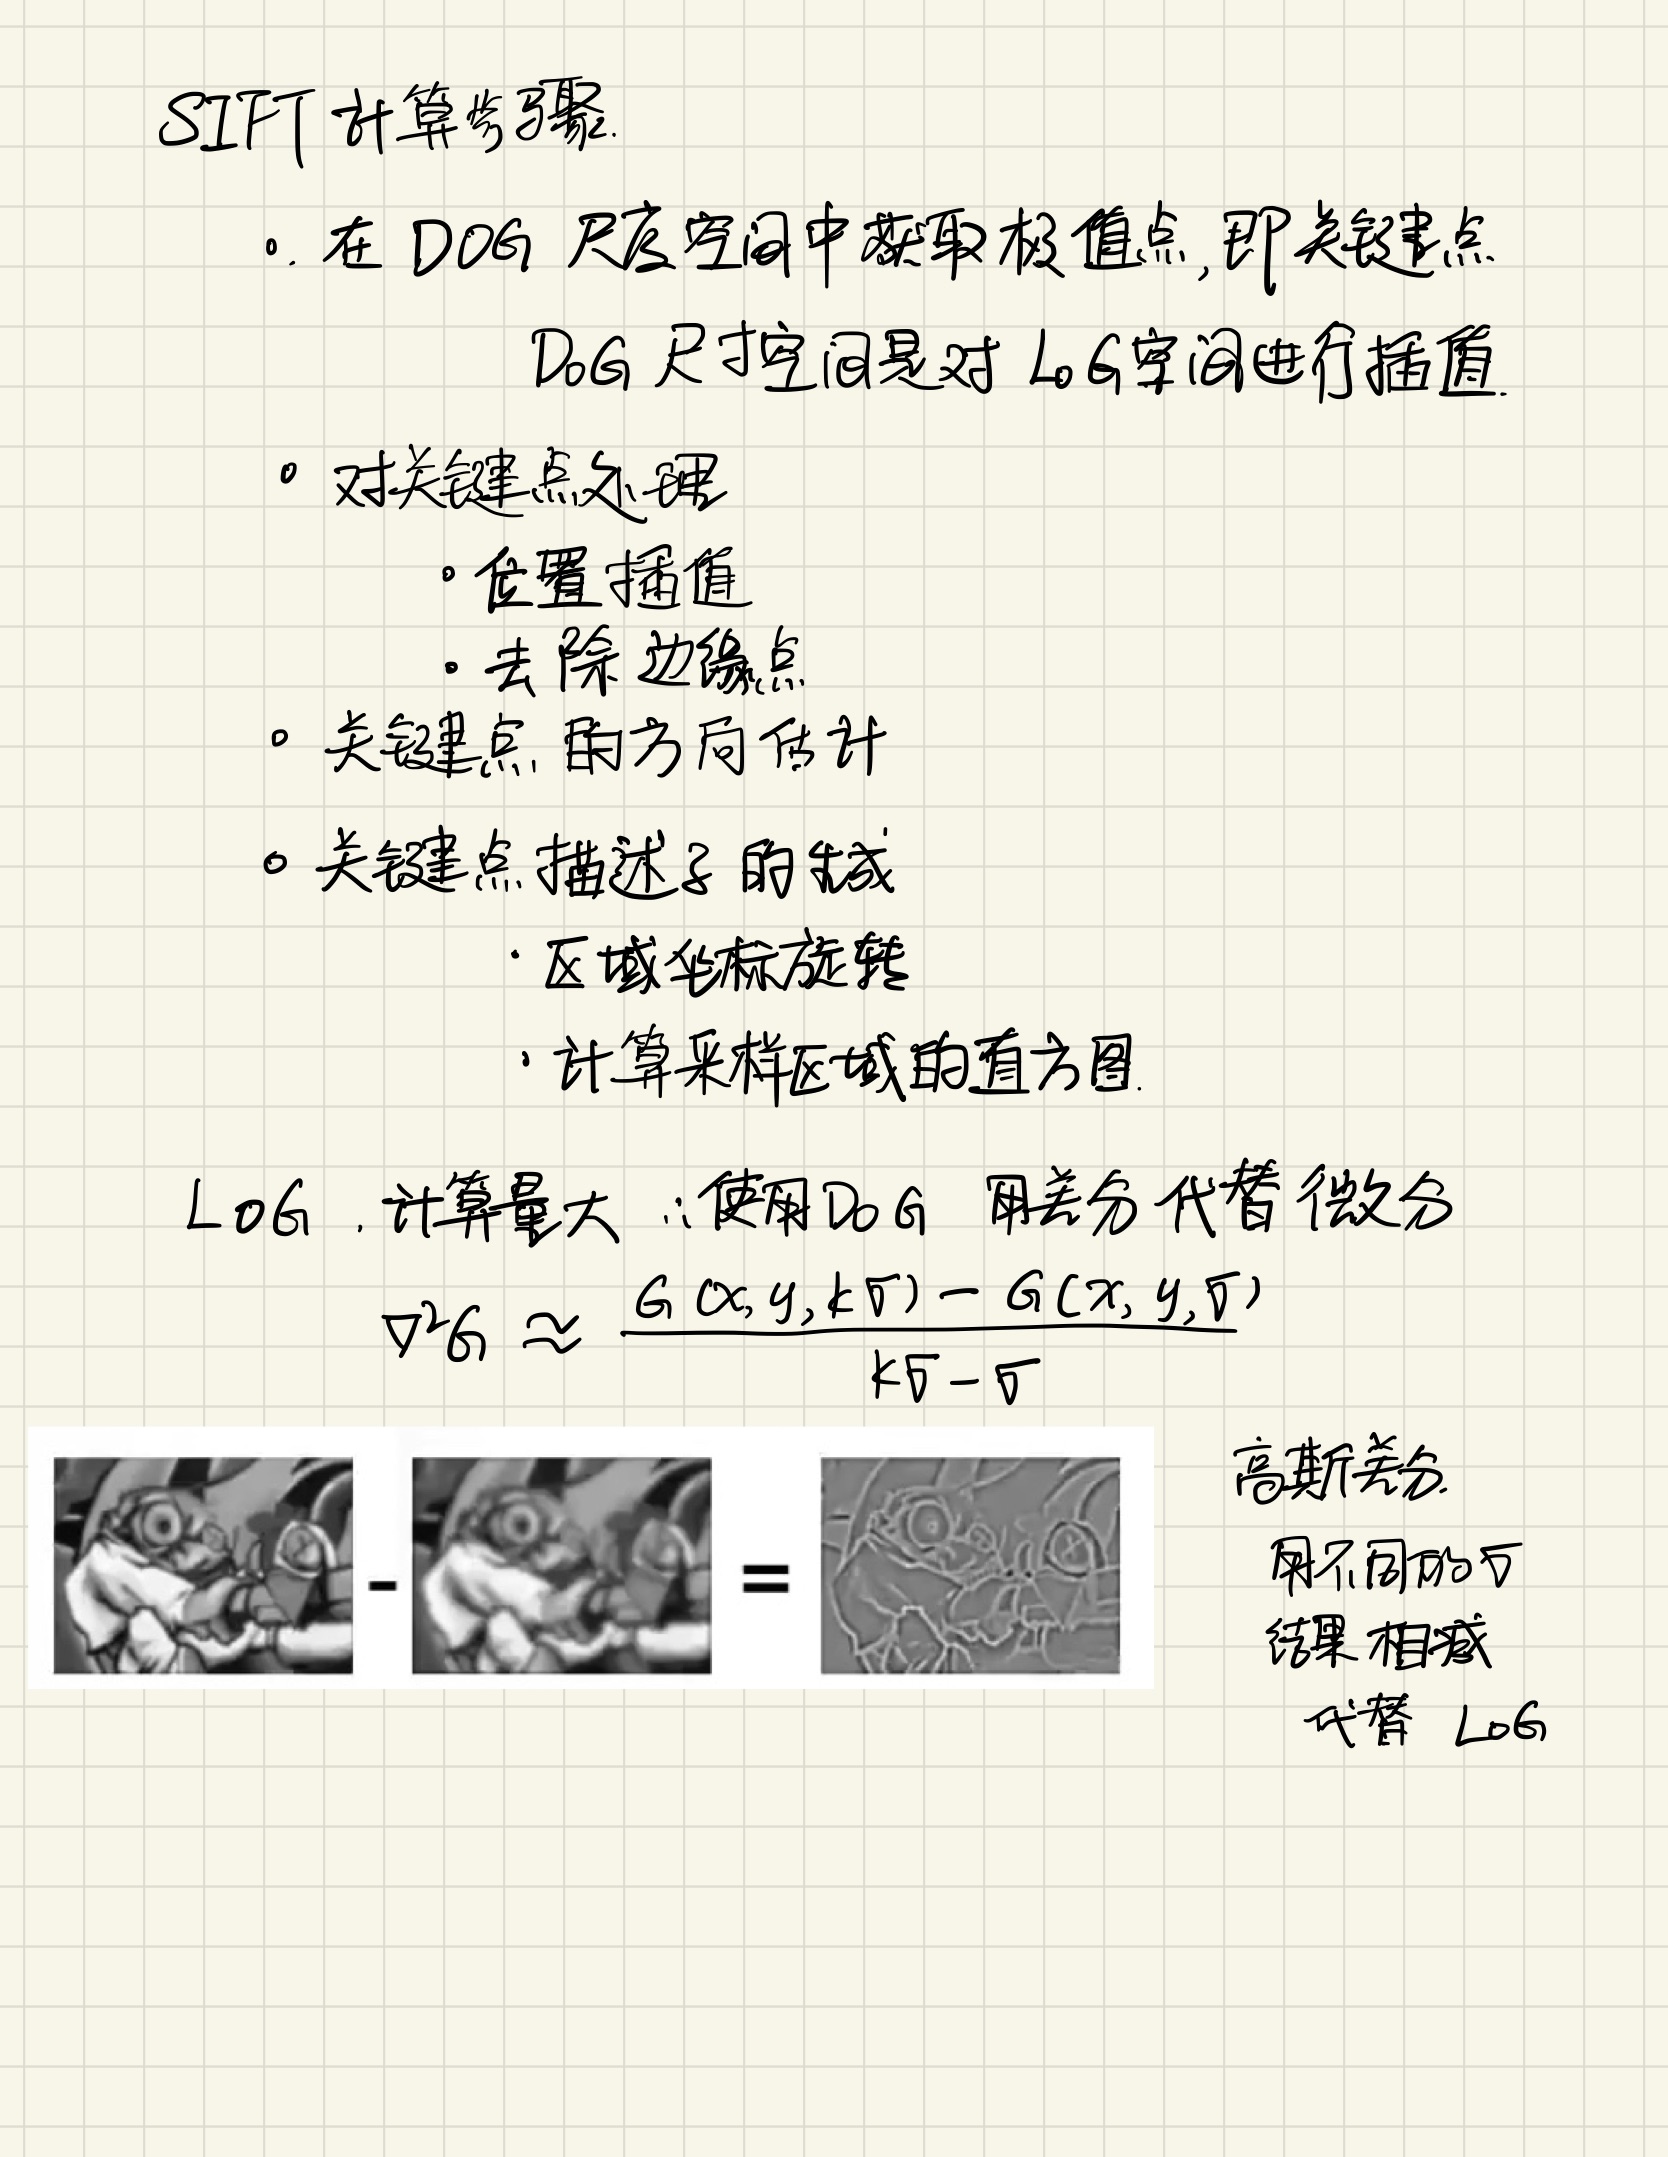 SIFT 计算步骤.
在 DOG 尺度空间中获取极值点,即关键点
DoG 尺寸空间是对 LoG空间进行插值.
对关键点处理
位置插值
去除边缘点
关键点的方向估计
关键点描述子的生成
区域坐标旋转
计算采样区域的直方图.
LOG. 计算量大 ∴使用DoG 用差分代替微分
∇²G ≈ G(x,y,kσ) - G(x,y,σ) / kσ - σ
- =
高斯差分.
用不同的σ
结果相减
代替 LoG